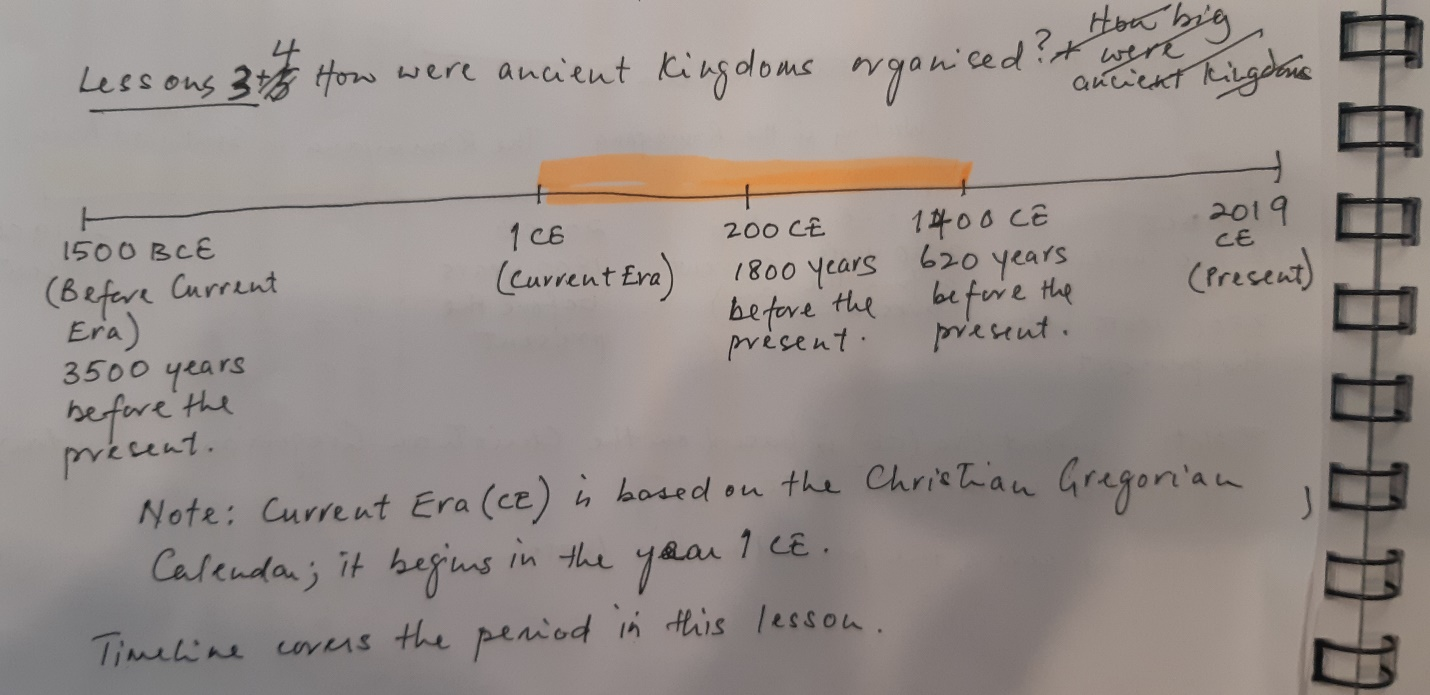 Lessons 3+4 How were ancient Kingdoms organised? + How big
were
ancient Kingdoms
1500 BCE
(Before Current
Era)
3500 years
before the
present.
1 CE
(Current Era)
200 CE
1800 years
before the
present.
1400 CE
620 years
before the
present.
2019
CE
(Present)
Note: Current Era (CE) is based on the Christian Gregorian
Calendar; it begins in the year 1 CE.
Timeline covers the period in this lesson.